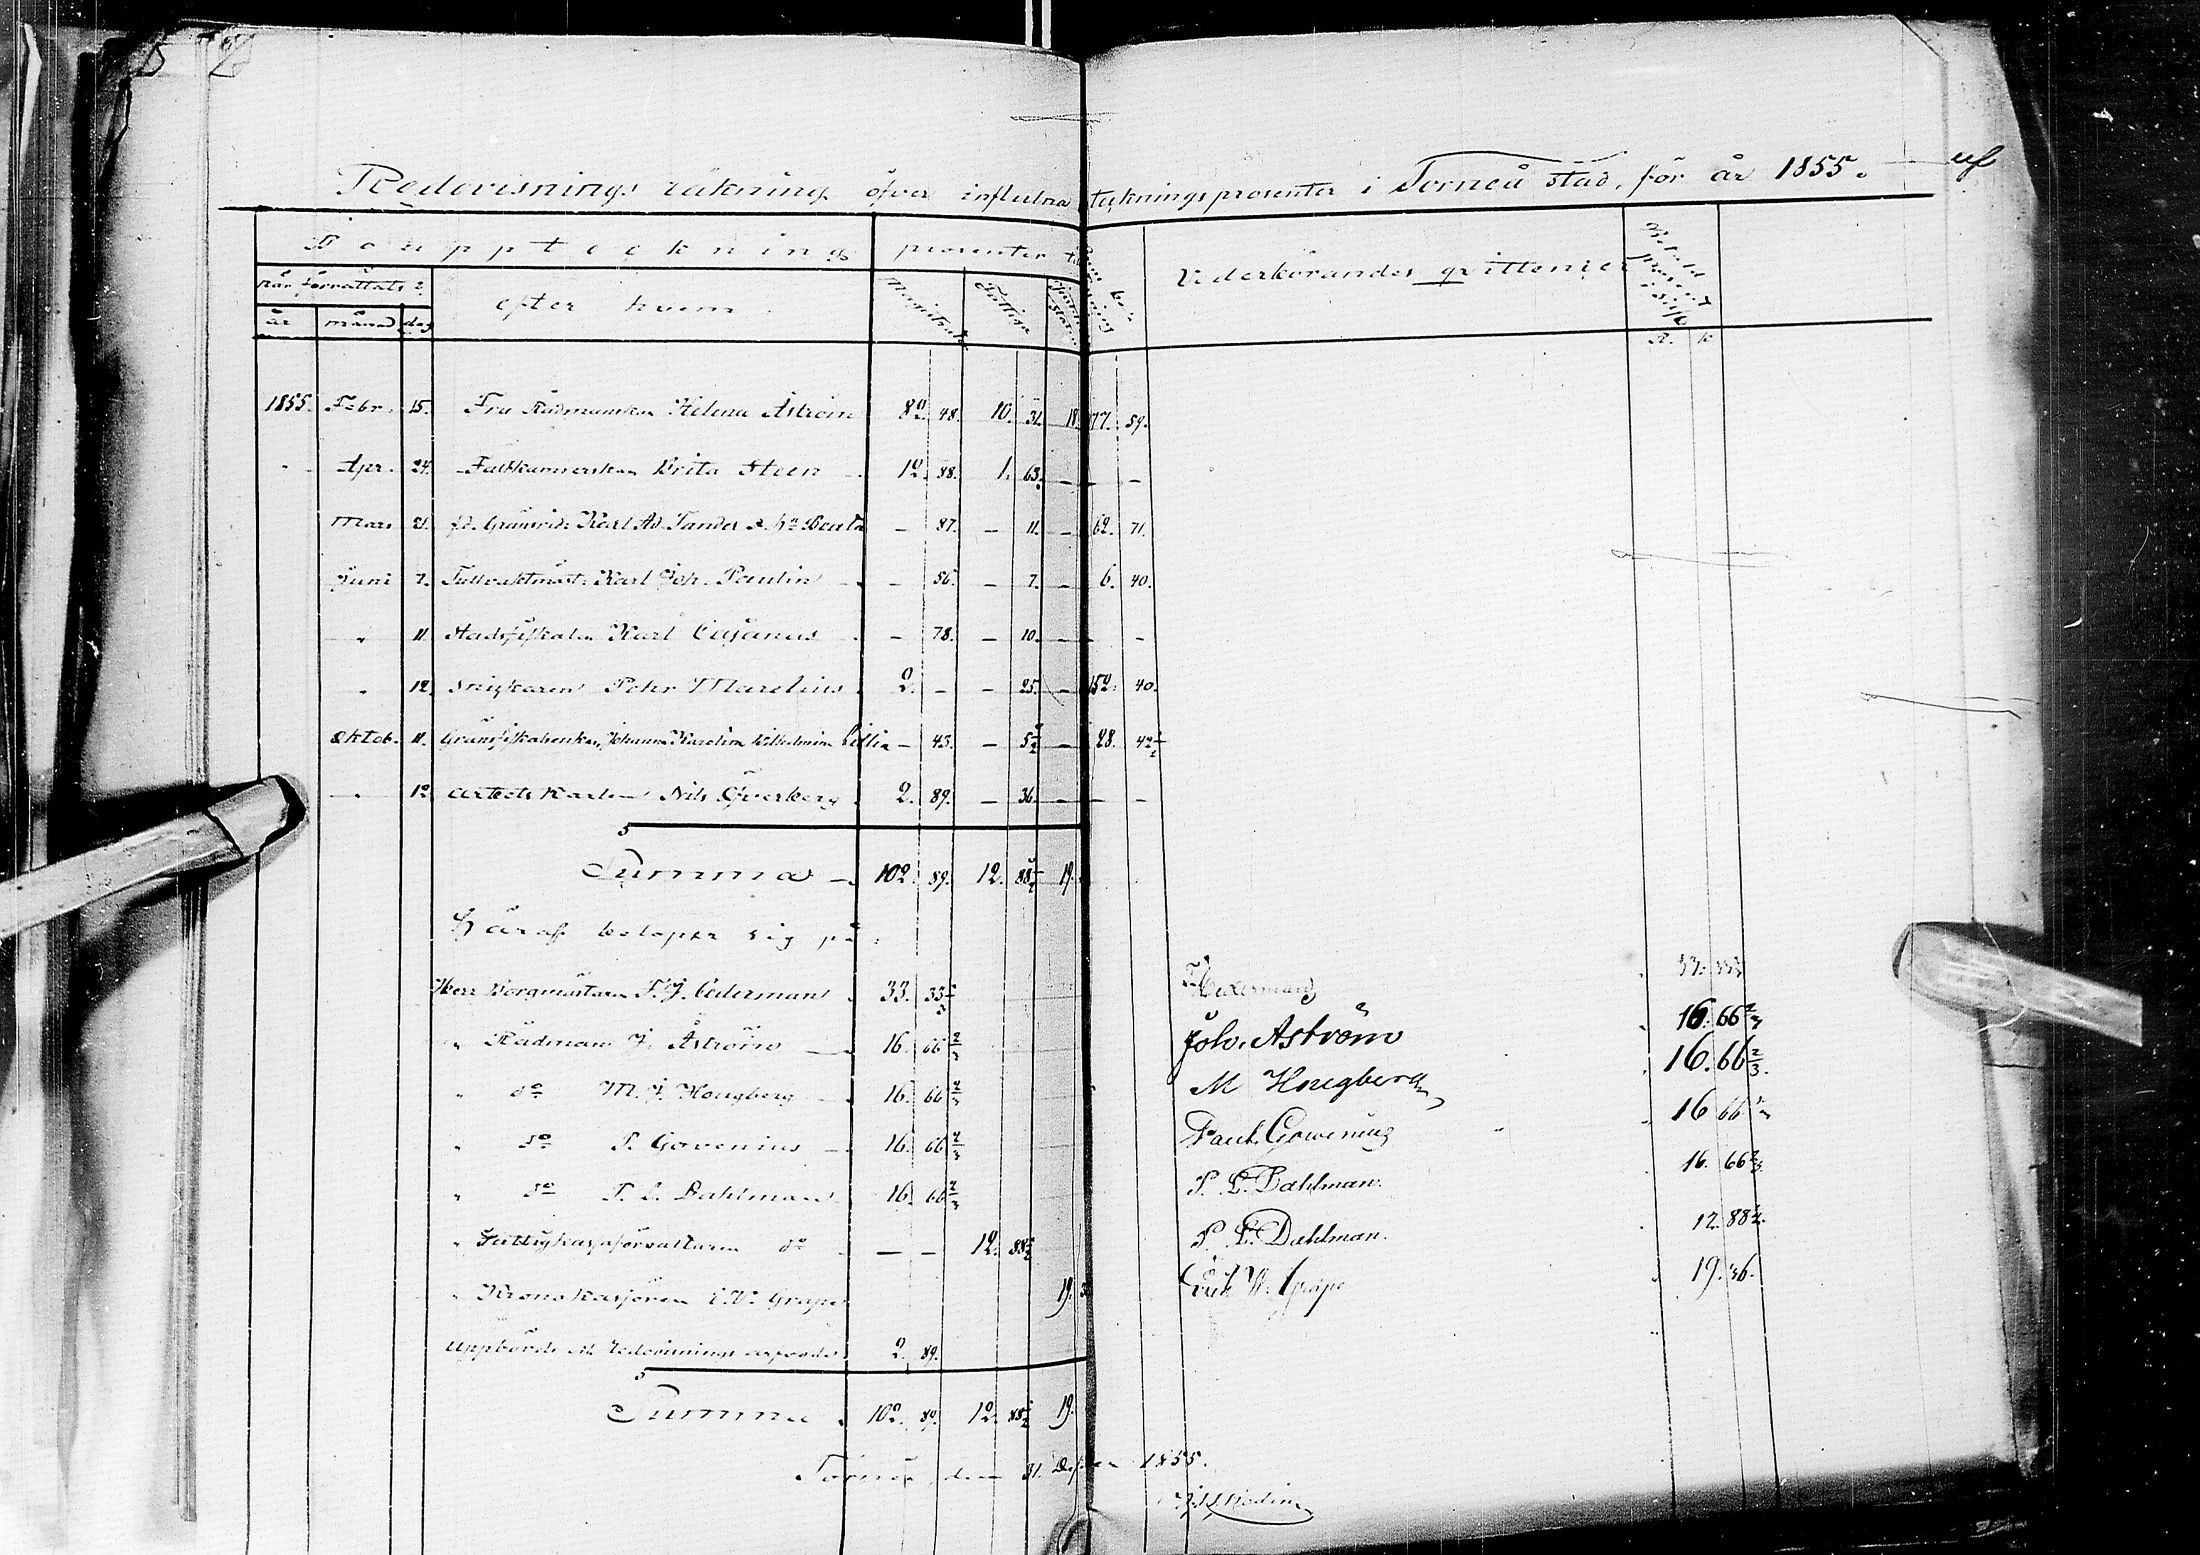 Redovisnings räkning öfver influtna teckningsprosenter i Torneå stad, för år 1855.
Boupptecknings prosenter till
När förrättats?
efter hvem
Magistrat
Fattiga
Vederbörandes qvittenser
år månad dag
R. k
1855. Febr. 15. Fru Rådmanskan Helena Åström 82. 48. 10. 31. 18. 77. 59.
" Apr. 24. Brita Steen 12. 88. 1. 63. — — —
Mars 21. fd. Gränsrid: Karl Ad. Tander — 87. — 11. — 62. 71.
Juni 7. Tullvaktmäst: Karl Joh. Paulin — 56. — 7. — 6. 40.
" 11. Stadsfiskalen Karl Cajanus — 78. — 10. — — —
" 12. Snickaren Pehr Marelius 2. — — 25. — 152. 40.
Oktob. 11. Johanna Karolina Wilhelmina — 43. — 5½ — 28. 42½
" 12 arbets karlen Nils Öfverberg 2. 89. — 36. — — —
Summa 102. 89. 12. 88½ 19.
Häraf belöper sig på:
Herr Borgmästaren F. J. Cederman 33. 33⅓
" Rådman J. Åström 16. 66⅔ Joh. Åström 16. 66⅔
" do M. J. Hougberg 16. 66⅔ M Hougberg 16. 66⅔
" do P. Govenius 16. 66⅔ Paul Govenius 16 66⅔
" do P. L. Dahlman 16. 66⅔ P. L. Dahlman. 16. 66⅔
" Fattigkassaförvaltaren do — — 12. 88½ P. L. Dahlman. 12. 88½
" Kronokassören E. W. Grape 19. Erik W. Grape 19. 36.
Uppbörds och Redovisnings arfvode 2. 89.
Summa 102. 89. 12. 88½ 19.
Torneå den 31. 1855.